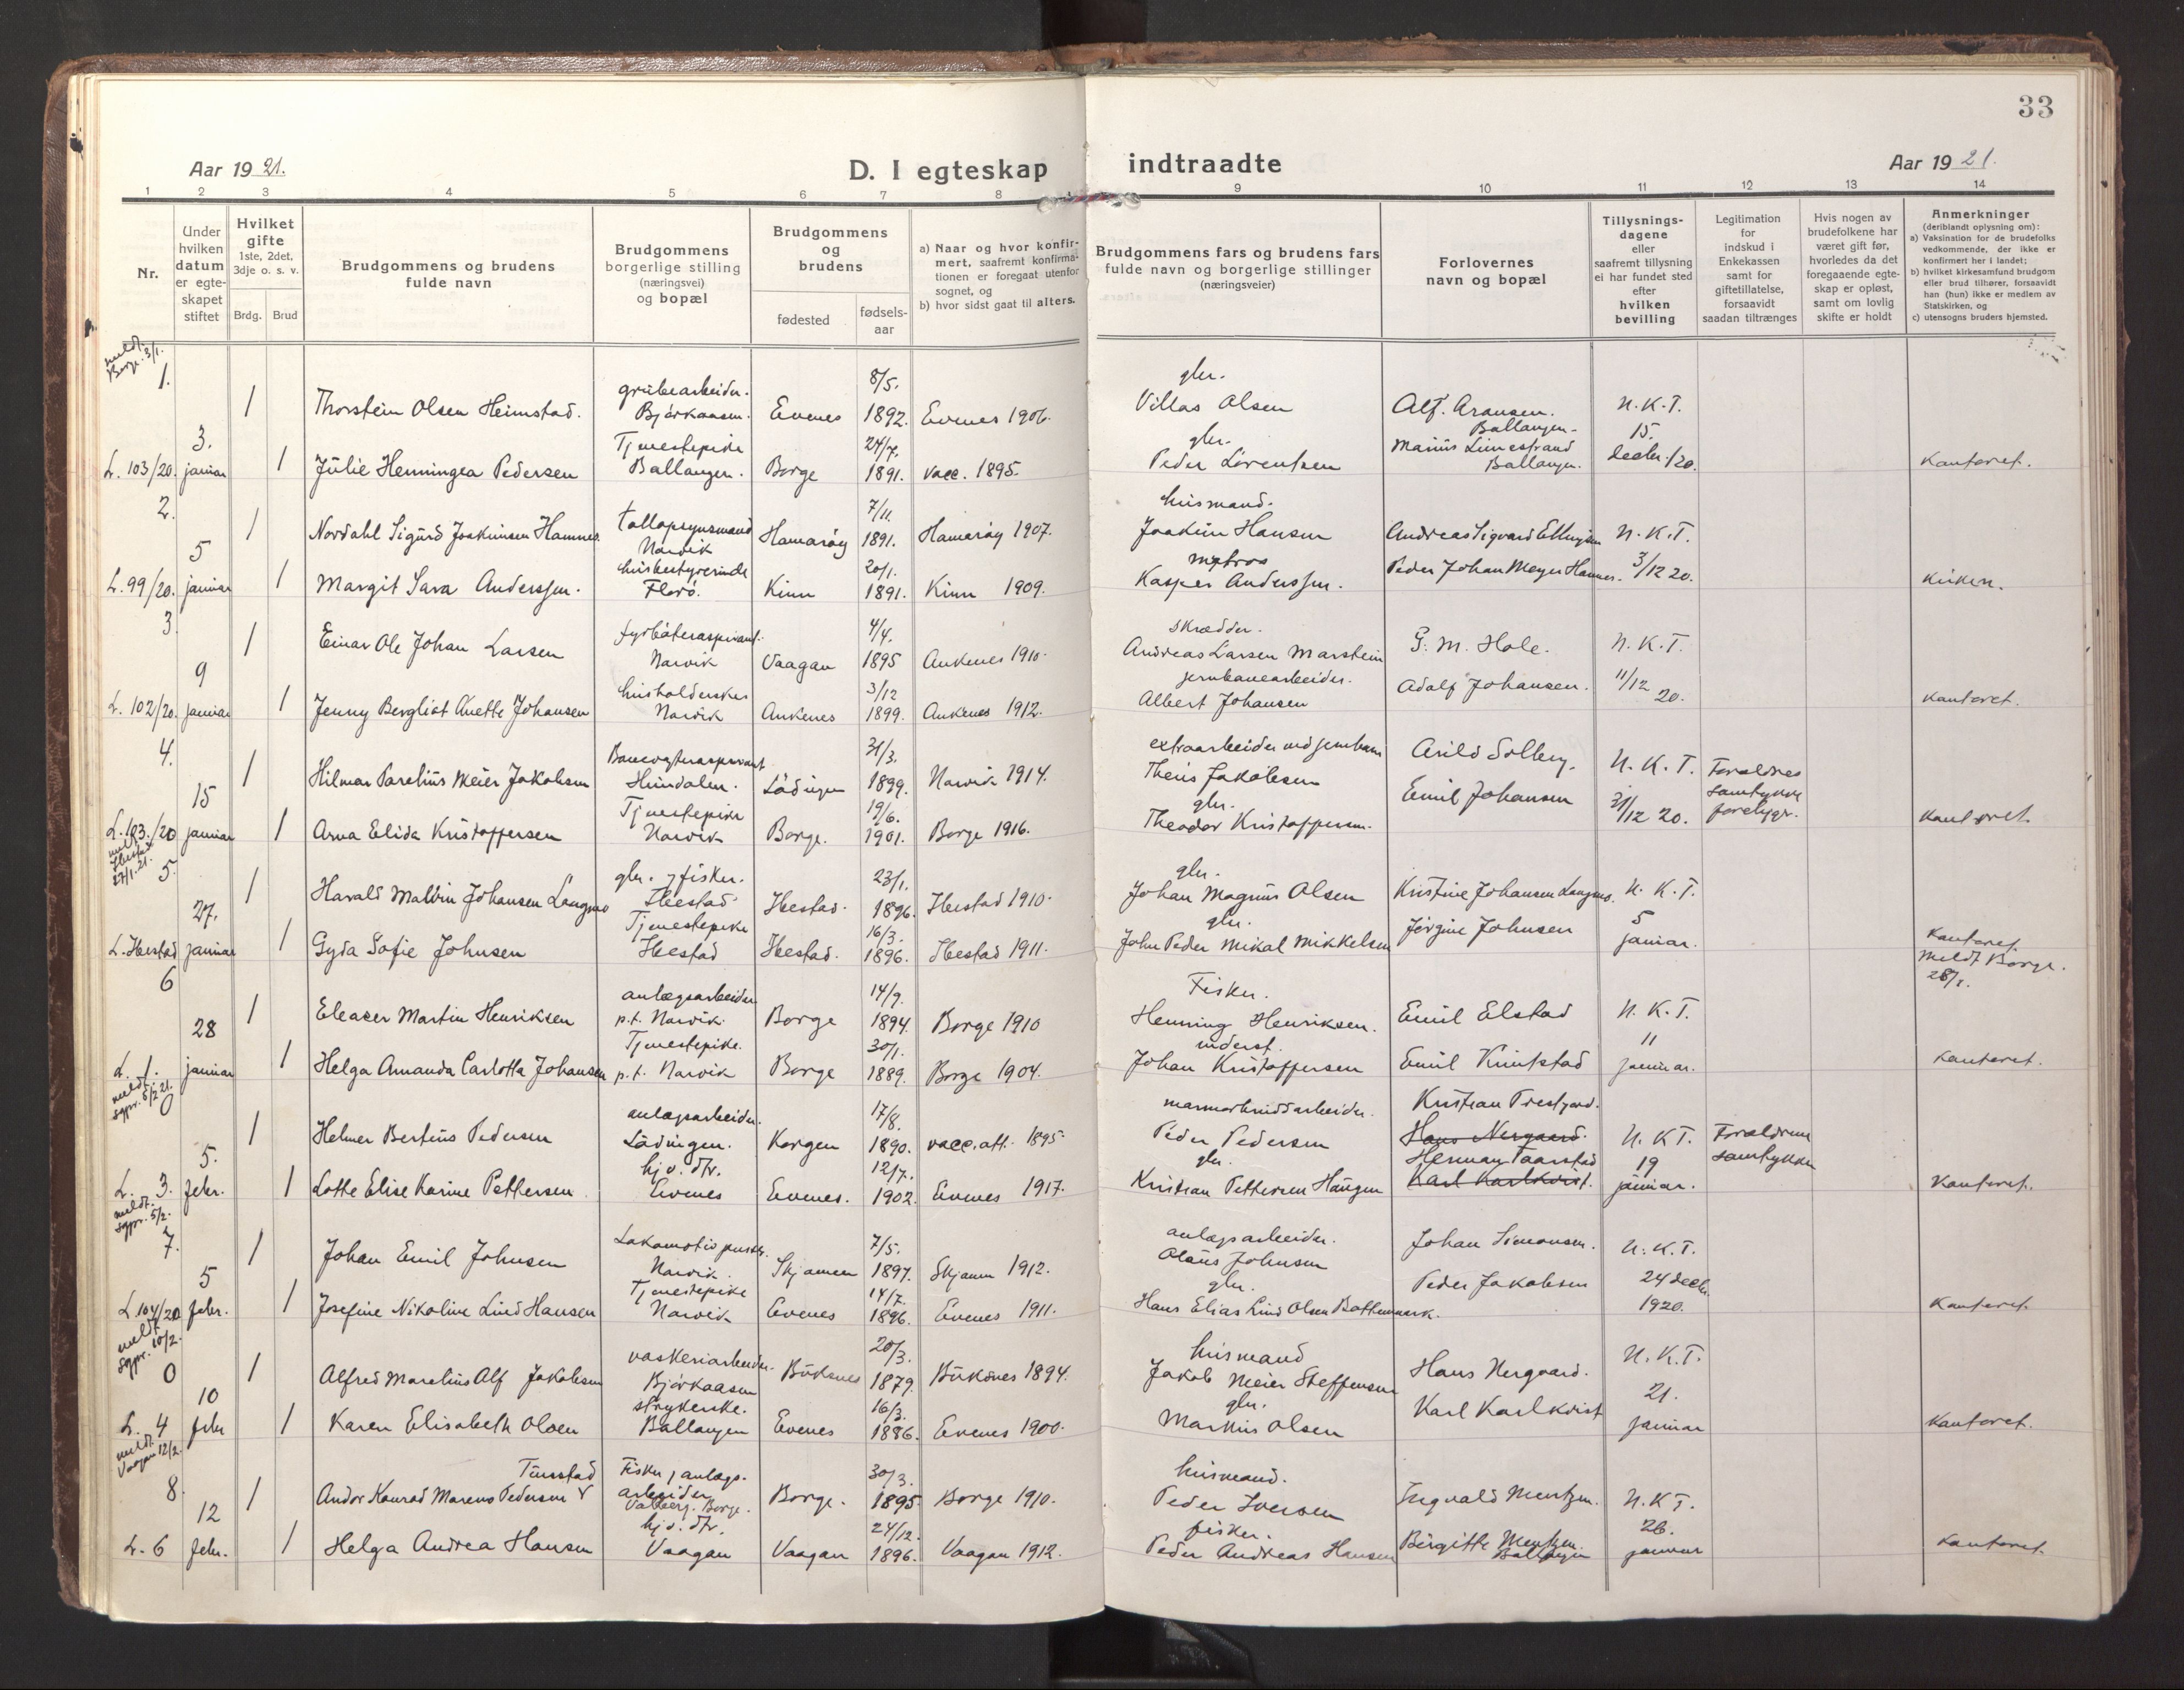 33
Aar 1921.
D. I egteskap indtraadte
Aar 1921.
1 2 3 4 5 6 7 8 9 10 11 12 13 14
Nr.
Under hvilken datum er egteskapet stiftet
Hvilket gifte
1ste, 2det, 3dje o. s. v.
Brdg. Brud
Brudgommens og brudens fulde navn
Brudgommens borgerlige stilling (næringsvei) og bopæl
Brudgommens og brudens
fødested
fødsels-aar
a) Naar og hvor konfirmert, saafremt konfirmationen er foregaat utenfor sognet, og
b) hvor sidst gaat til alters.
Brudgommens fars og brudens fars fulde navn og borgerlige stillinger (næringsveier)
Forlovernes navn og bopæl
Tillysningsdagene eller saafremt tillysning ei har fundet sted efter hvilken bevilling
Legitimation for indskud i Enkekassen samt for giftetillatelse, forsaavidt saadan tiltrænges
Hvis nogen av brudefolkene har været gift før, hvorledes da det foregaaende egteskap er opløst, samt om lovlig skifte er holdt
Anmerkninger
(deriblandt oplysning om):
a) Vaksination for de brudefolks vedkommende, der ikke er konfirmert her i landet;
b) hvilket kirkesamfund brudgom eller brud tilhører, forsaavidt han (hun) ikke er medlem av Statskirken, og
c) utensogns bruders hjemsted.
meldt Borge 3/1.
1. 1 Thorstein Olsen Heimstad. grubearbeider. Bjørkaasen. Evenes 8/5. 1892. Evenes 1906. gbr. Villas Olsen Alf. Aronsen. Ballangen. N.K.T.
L. 103/20. 3. januar 1 Julie Henningea Pedersen Tjenestepike Ballangen. Borge 24/7. 1891. vacc. 1895. gbr. Peder Lorentsen Marius Limestrand Ballangen. 15. decbr. /20. Kontoret.
2. 1 Nordahl Sigurd Joakimsen Hamnes tollopsynsmand Narvik Hamarøy 7/11. 1891. Hamarøy 1907. husmand. Joakim Hansen Andreas Sigvard Ellingsen N.K.T.
L. 99/20. 5 januar 1 Margit Sara Anderssen. husbestyrerinde Florø. Kinn 20/1. 1891. Kinn 1909. matros Kasper Anderssen. Peder Johan Meyer Hamnes. 3/12 20. Kirken.
3. 1 Einar Ole Johan Larsen fyrbøteraspirant. Narvik Vaagan 4/4. 1895 Ankenes 1910. skrædder. Andreas Larsen Marstein G. M. Hole. N.K.T.
L. 102/20. 9 januar 1 Jenny Bergliot Anette Johansen husholderske Narvik Ankenes 3/12 1899. Ankenes 1912. jernbanearbeider. Albert Johansen Adolf Johansen. 11/12 20. Kontoret.
4. 1 Hilmar Parelius Meier Jakobsen Banevogteraspirant Hundalen. Lødingen 31/3. 1899. Narvik 1914. extraarbeider ved jernbanen Theis Jakobsen Arild Solberg. N.K.T. Forældres samtykke forelygr.
L. 103./20 15 januar 1 Arna Elida Kristoffersen Tjenestepike Narvik Borge. 19/6. 1901. Borge 1916. gbr. Theodor Kristoffersen. Emil Johansen 31/12 20. Kontoret.
meldt Ibestad 27/1.21.
5. 1 Harald Malvin Johansen Langmo gbr. & fisker. Ibestad. Ibestad. 23/1. 1896. Ibestad 1910. gbr. Johan Magnus Olsen Kristine Johansen Langmo. N.K.T.
L. Ibestad 27. januar 1 Gyda Sofie Johnsen Tjenestepike Ibestad Ibestad. 16/3. 1896. Ibestad 1911. gbr. John Peder Mikal Mikkelsen Jørgine Johnsen 5 januar. Kontoret.
meldt Borge. 28/1.
6 1 Eleaser Martin Henriksen anlægsarbeider p.t. Narvik. Borge 14/9. 1894. Borge 1910 Fisker. Henning Henriksen. Emil Elstad N.K.T.
L. 1. 28 januar 1 Helga Amanda Carlotta Johansen Tjenestepike. p.t. Narvik Borge 30/1. 1889. Borge 1904. inderst. Johan Kristoffersen Emil Kunkstad 11 januar. Kontoret.
meldt sgpr. 5/2 21.
0 1 Helmer Bertius Pedersen anlægsarbeider. Lødingen. Korgen 17/8. 1890. vacc.att. 1895. marmorbrudsarbeider. Peder Pedersen Kristian Prestgard. Hans Nergaard. N.K.T. Forældrene samtykke
L. 3. 5. febr. 1 Lotte Elise Karine Pettersen hj. v. dtr. Evenes Evenes. 12/7. 1902. Evenes 1917. gbr. Kristian Pettersen Haugen Herman Taarstad Karl Karlkvist. 19 januar. Kontoret.
meldt. sgpr. 5/2.
7. 1 Johan Emil Johnsen Lokomotivpudser. Narvik. Skjomen 7/5. 1897. Skjomen 1912. anlægsarbeider. Olaus Johnsen Johan Simonsen. N.K.T.
L. 104/20 5 febr. 1 Josefine Nikoline Lind Hansen Tjenestepike Narvik Evenes 14/7. 1896. Evenes 1911. gbr. Hans Elias Lind Olsen Bottenmark. Peder Jakobsen 24 decbr. 1920. Kontoret.
meldt sgpr. 10/2.
0 1 Alfred Marelius Alf Jakobsen vaskeriarbeider. Bjørkaasen Buksnes 20/3. 1879. Buksnes 1894. husmand Jakob Meier Steffensen Hans Nergaard. N.K.T.
L. 4 10 febr 1 Karen Elisabeth Olsen strykerske. Ballangen Evenes 16/3. 1886. Evenes 1900. gbr. Markus Olsen Karl Karlkvist 21. januar Kontoret.
meldt. Vaagan 12/2.
8. 1 Andor Konrad Marens Pedersen Tinstad Fisker, anlægsarbeider Valberg. Borge. Borge. 30/3. 1895 Borge 1910. husmand. Peder Iversen Ingvald Mentzen. N.K.T.
L. 6 12 febr. 1 Helga Andrea Hansen hj. v. dtr. Vaagan Vaagan 24/12. 1896. Vaagan 1912. fisker. Peder Andreas Hansen Birgitte Mentzen. Ballangen 26. januar Kontoret.